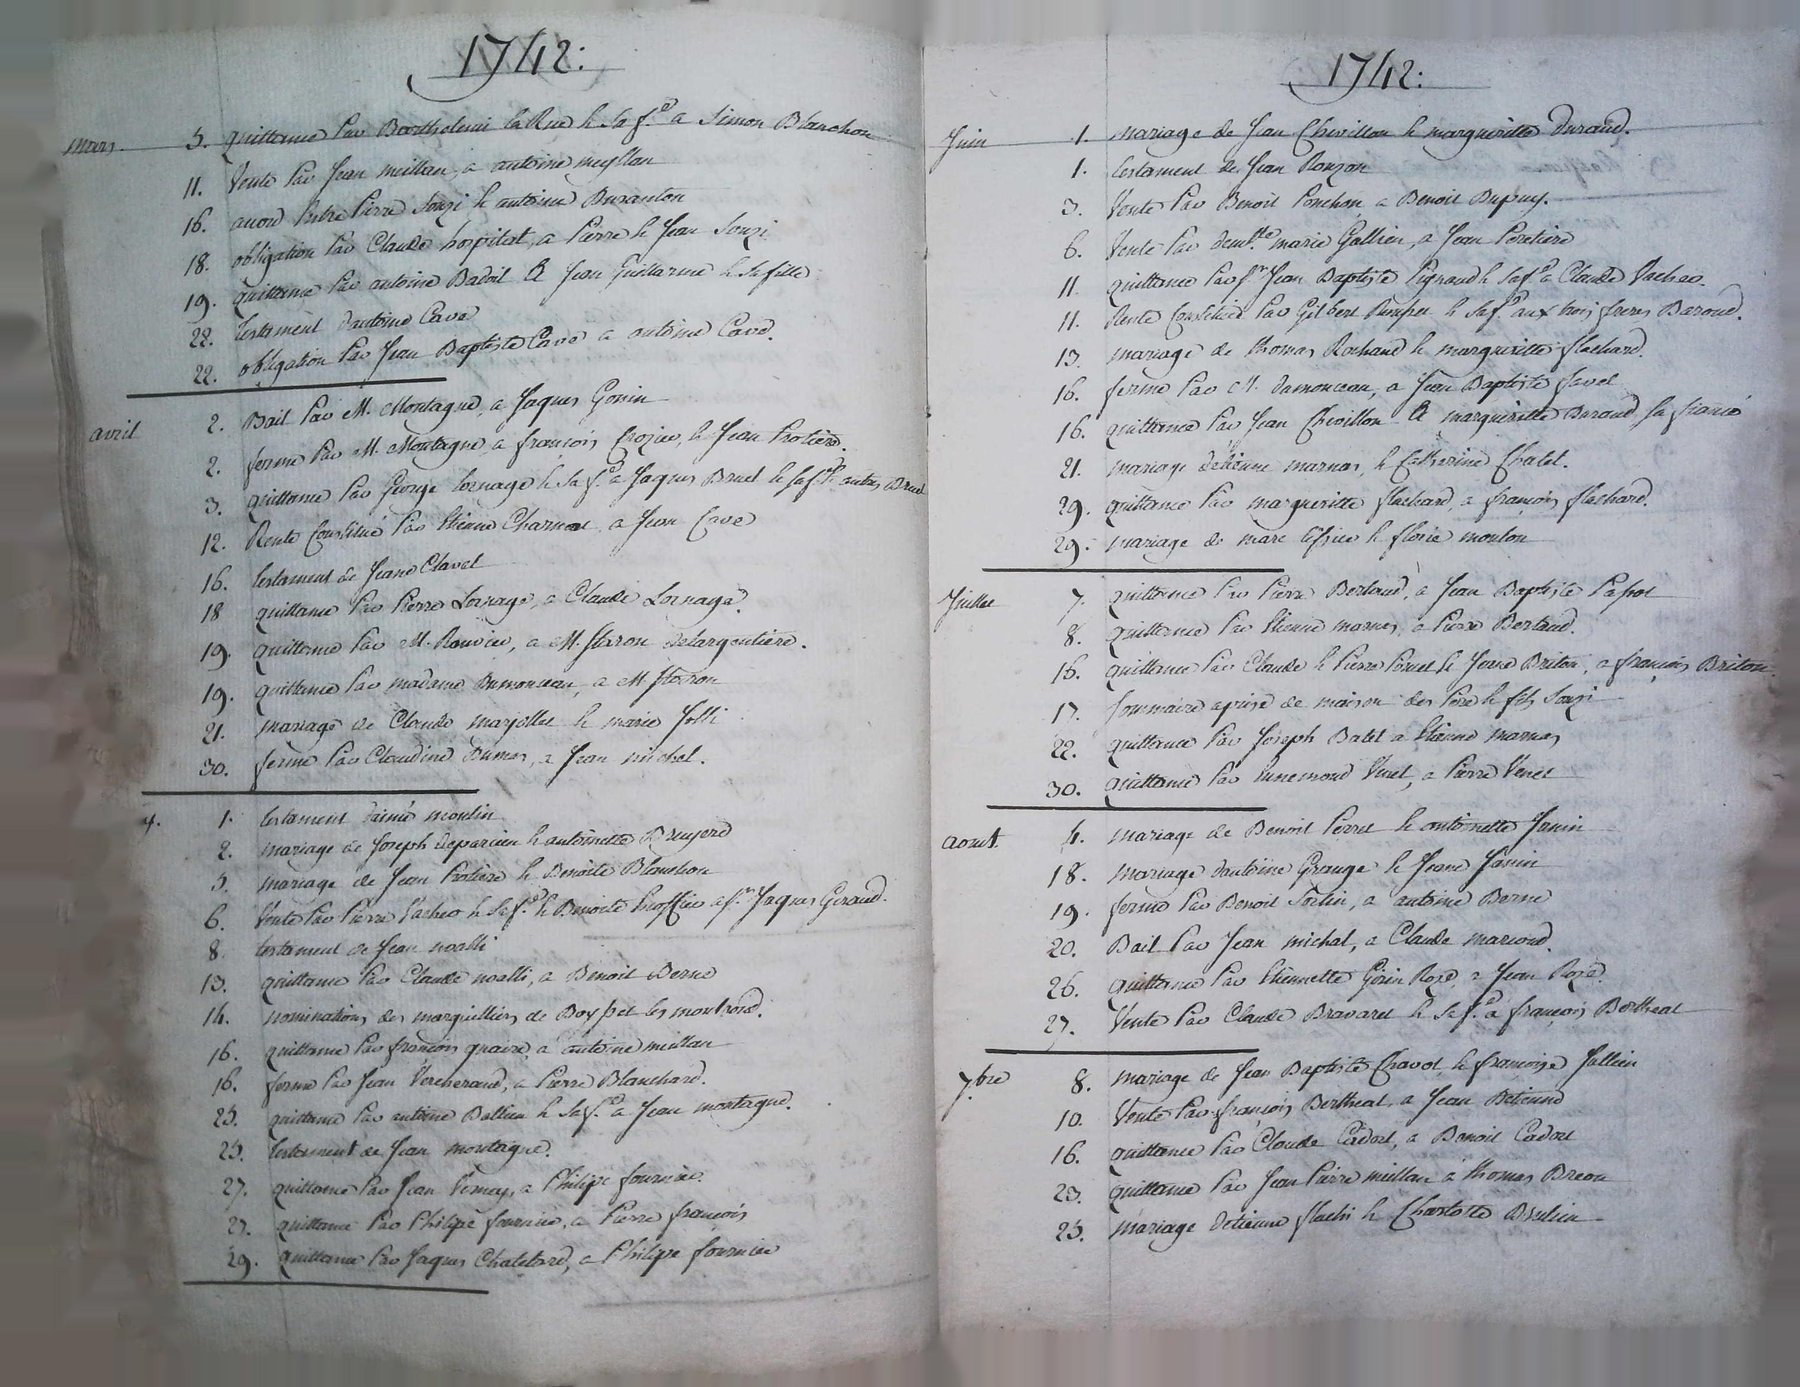 1742:
mars 5. quittance par Barthelemi la Rue & sa f.e a Simon Blanchon
11. Vente par Jean meillan, a antoine meillan
16. acord entre Pierre Souzi & antoine Duranton
18. obligation par Claude hospital, a Pierre & Jean Souzi
19. quittance par antoine Badoil A Jean Guillarme & sa fille
22. testament d'antoine Cave
22. obligation par Jean Baptiste Cave a antoine Cave.
avril 2. Bail par M. Montagne, a Jaques Gonin
2. ferme par M. Montagne, a françois Crozier, & Jean Protiere.
3. quittance par George Lornage & sa f.e a Jaques Bruel & sa f.e & autres Bruel
12. Rente Constitué par Etienne Charnoz a Jean Cave
16. testament de Jeane Clavel
18 quittance par Pierre Lornage, a Claude Lornage.
19. quittance par M. Rouvier, a M. Staron delargentiere.
19. quittance par madame Dumonceau, a M. Staron
21. mariage de Claude marjollet & marie Jolli
30. ferme par Claudine Dumas, a Jean michel.
1. testament d'aimé moulin
2. mariage de Joseph deparcieu & antoinette Bruyere
5. mariage de Jean Protiere & Benoite Blanchon
6. Vente par Pierre Vacher & sa f.e & Benoite a s.r Jaques Geraud.
8. testament de Jean noalli
13. quittance par Claude noalli, a Benoit Berne
14. nomination des marguilliers de Boysset les montrond.
16. quittance par françois quaire, a antoine meillan
16. ferme par Jean Vercherand, a Pierre Blanchard.
25. quittance par antoine Dallieu & sa f.e a Jean montagne.
25. testament de Jean montagne.
27. quittance par Jean Vernay, a Philipe fournier.
27. quittance par Philipe fournier, a Pierre françois
29. quittance par Jaques Chatelard, a Philipe fournier
1742:
Juin 1. mariage de Jean Chevillon & marguiritte Duraud.
1. testament de Jean Ronzon
3. Vente par Benoit Ponchon, a Benoit Dupuy.
6. Vente par dem.lle marie Gallien, a Jean Peretiere
11 quittance par s.r Jean Baptiste Pignaud & sa f.e a Claude Vacher.
11. Rente Constitué par Gilbert & sa f.e aux trois freres Baroud.
13 mariage de thomas Rochand & marguiritte flachard.
16. ferme par M. dumonceau, a Jean Baptiste favel
16. quittance par Jean Chevillon A marguiritte Duraud sa fiancé
21. mariage d'etienne marnas, & Catherine Chatel.
29. quittance par marguiritte flachard, a françois flachard.
29. mariage de marc & florie monton
Juillet 7. quittance par Pierre Bertaud, a Jean Baptiste Papot
8. quittance par Etienne marnas, a Pierre Bertaud.
16. quittance par Claude & Pierre Perret & Jeane Briton, a françois Briton.
17. sommaire aprise de maison des Pere & fils Souzi
22. quittance par Joseph Balet a Etienne marnas
30. quittance par Venet, a Pierre Venet
aout 4. mariage de Benoit Perret & antoinette Janin
18. mariage d'antoine Grange & Jeane Janin
19. ferme par Benoit Fortin, a antoine Berne
20. Bail par Jean michal, a Claude marcoud.
26. quittance par Etiennette Gonin Roze a Jean Roze.
27. Vente par Claude Bravaret & sa f.e a françois Bertheat
7.bre 8. mariage de Jean Baptiste Chavot & françoise Jullien
10. Vente par françois Bertheat, a Jean Detienne
16. quittance par Claude Cadort, a Benoit Cadort
23. quittance par Jean Pierre meillan a thomas Breon
25. mariage d'etienne flachi & Charlotte Brulin